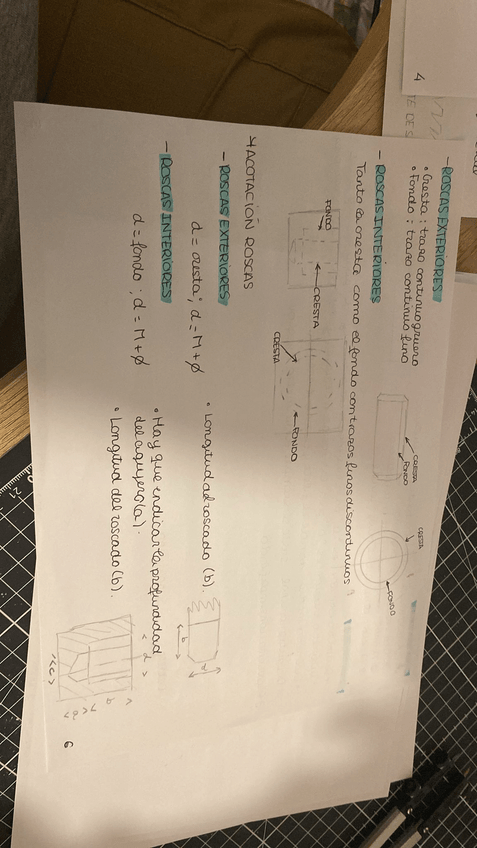 - ROSCAS EXTERIORES
• Cresta: trazo continuo grueso
• Fondo: trazo continuo fino
CRESTA
FONDO
CRESTA
FONDO
- ROSCAS INTERIORES
Tanto la cresta como el fondo con trazos finos discontinuos
FONDO
CRESTA
CRESTA
FONDO
ACOTACIÓN ROSCAS
- ROSCAS EXTERIORES
d = cresta; d = M + ø
• Longitud del roscado (b).
b
d
- ROSCAS INTERIORES
d = fondo; d = M + ø
• Hay que indicar la profundidad
del agujero (a).
• Longitud del roscado (b).
d
b
6
4